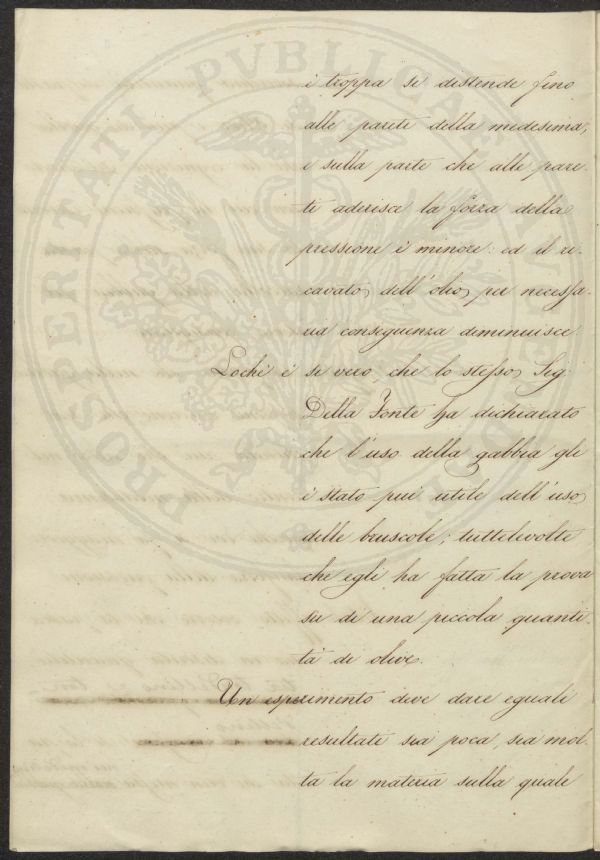 è troppa si distende fino
alle pareti della medesima,
e sulla parte che alle pare-
ti aderisce la forza della
pressione è minore: ed il ri-
cavato, dell'olio, per necessa-
ria conseguenza diminuisce.
Lochè è sì vero, che lo stesso Sig.
Della Fonte ha dichiarato
che l'uso della gabbia gli
è stato più utile dell'uso
delle bruscole; tuttelevolte
che egli ha fatta la prova
su di una piccola quanti-
tà di olive.
Un esperimento deve dare eguali
resultati sia poca, sia mol-
ta la materia sulla quale
PROSPERITATI PVBLICAE AVGENDAE